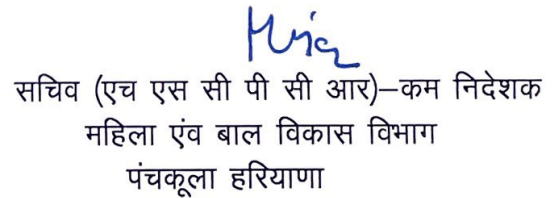 सचिव (एच एस सी पी सी आर)–कम निदेशक
महिला एंव बाल विकास विभाग
पंचकूला हरियाणा